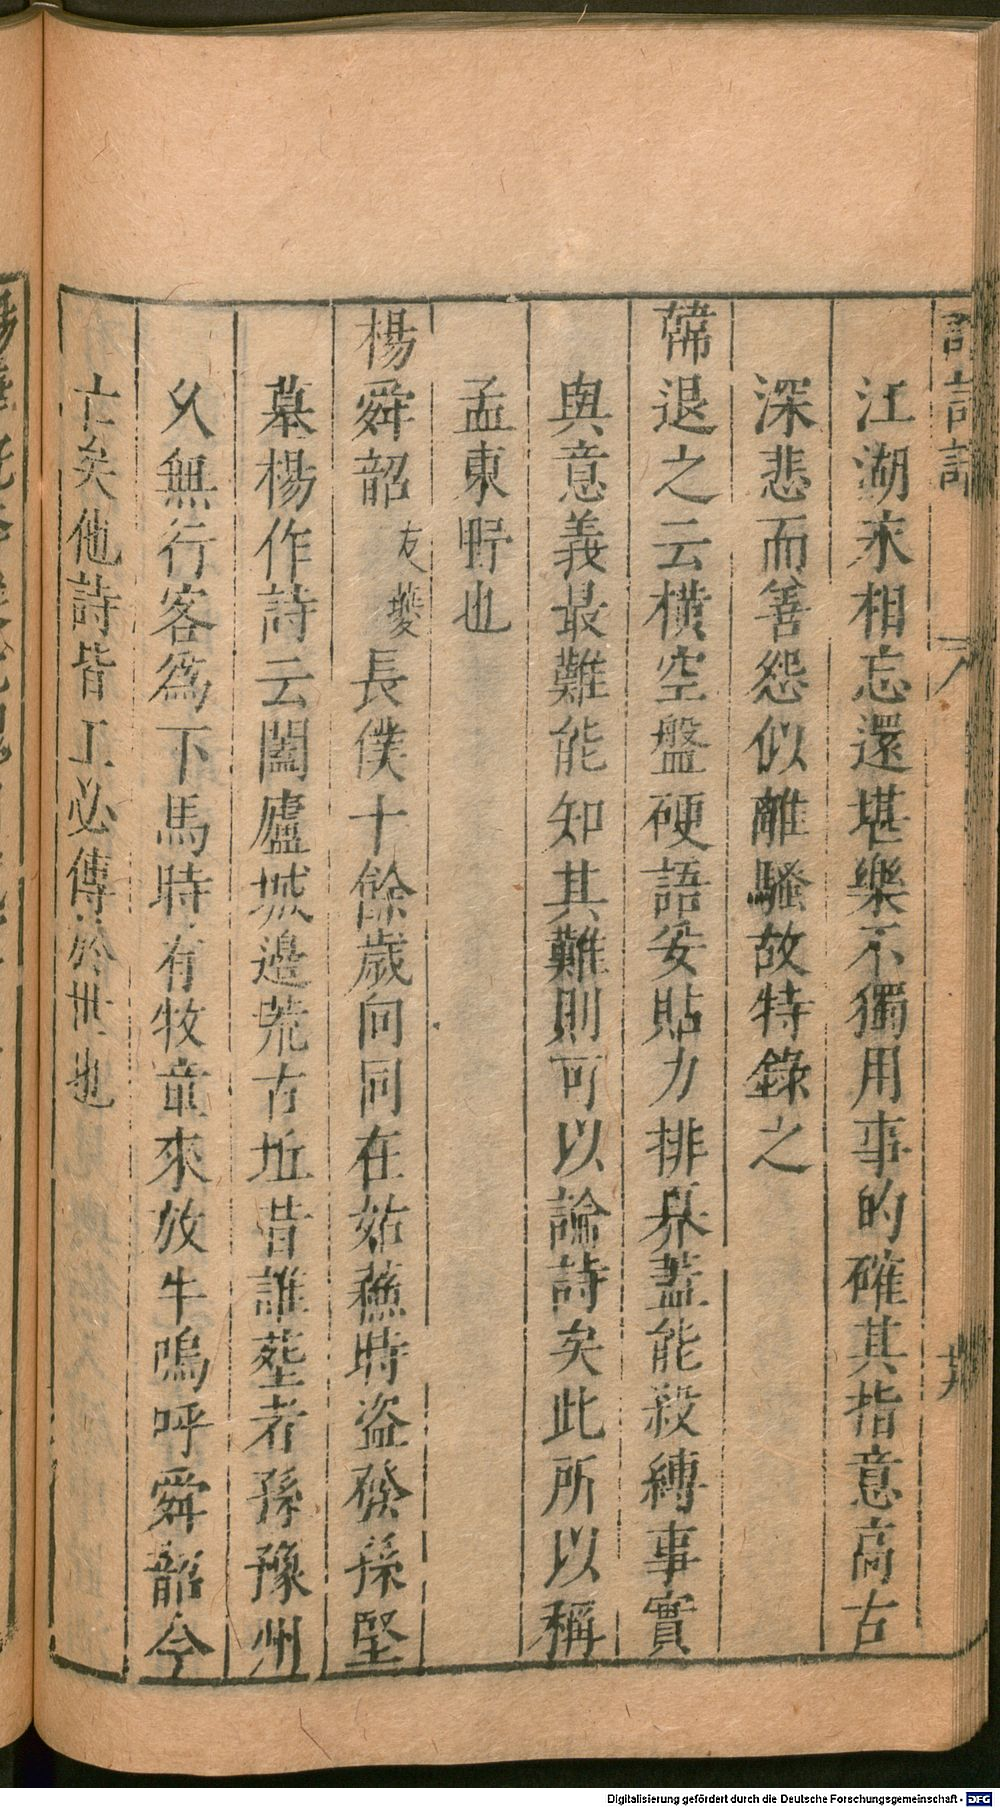 江湖永相忘還堪樂不獨用事的確其指意高古
深悲而善怨似離騷故特錄之
韓退之云橫空盤硬語妥貼力排奡蓋能殺縛事實
與意義最難能知其難則可以論詩矣此所以稱
孟東野也
楊舜韶友夔長僕十餘歲向同在姑蘇時盜發孫堅
墓楊作詩云闔廬城邊荒古丘昔誰葬者孫豫州
久無行客為下馬時有牧童來放牛嗚呼舜韶今
亡矣他詩皆工必傳於世也
Digitalisierung gefördert durch die Deutsche Forschungsgemeinschaft - DFG